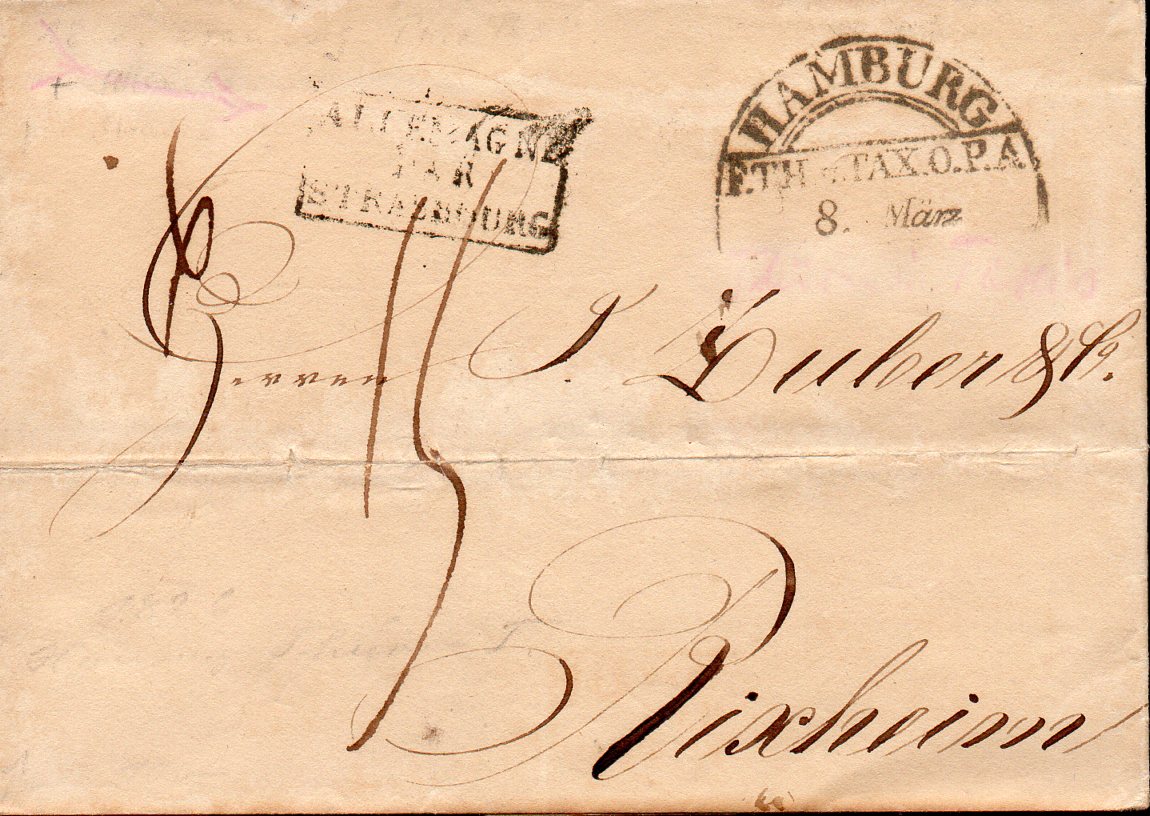 ALLEMAGNE
PAR
STRASBOURG
HAMBURG
F.TH.u.TAX.O.P.A.
8. März
Herren J. Zuber & Co.
15
Rixheim